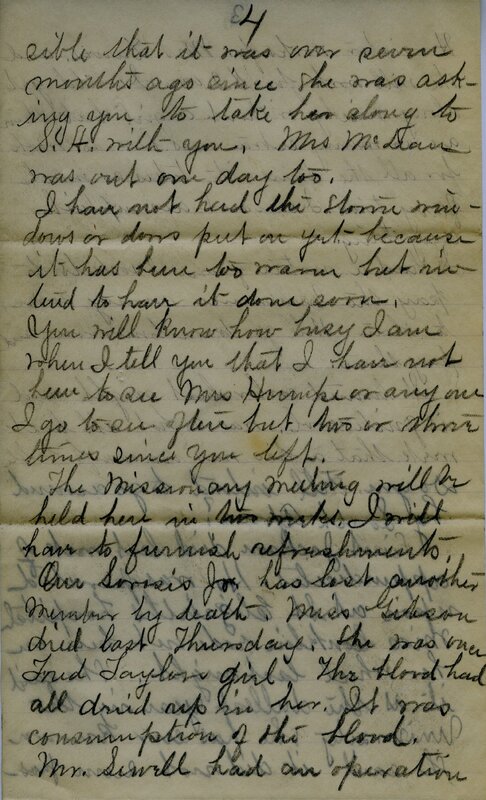 4
sible that it was over seven
months ago since she was ask-
ing you to take her along to
S. H. with you. Mrs McDean
was out one day too.
I have not had the storm win-
dows or doors put on yet because
it has been too warm but in-
tend to have it done soon.
You will know how busy I am
when I tell you that I have not
been to see Mrs Humpe or any one
I go to see often but two or three
times since you left.
The Missionary meeting will be
held here in two weeks. I will
have to furnish refreshments.
Our Sorosis Jr has lost another
member by death. Miss Gibson
died last Thursday. She was once
Fred Taylors girl. The blood had
all dried up in her. It was
consumption of the blood.
Mr. Sewell had an operation